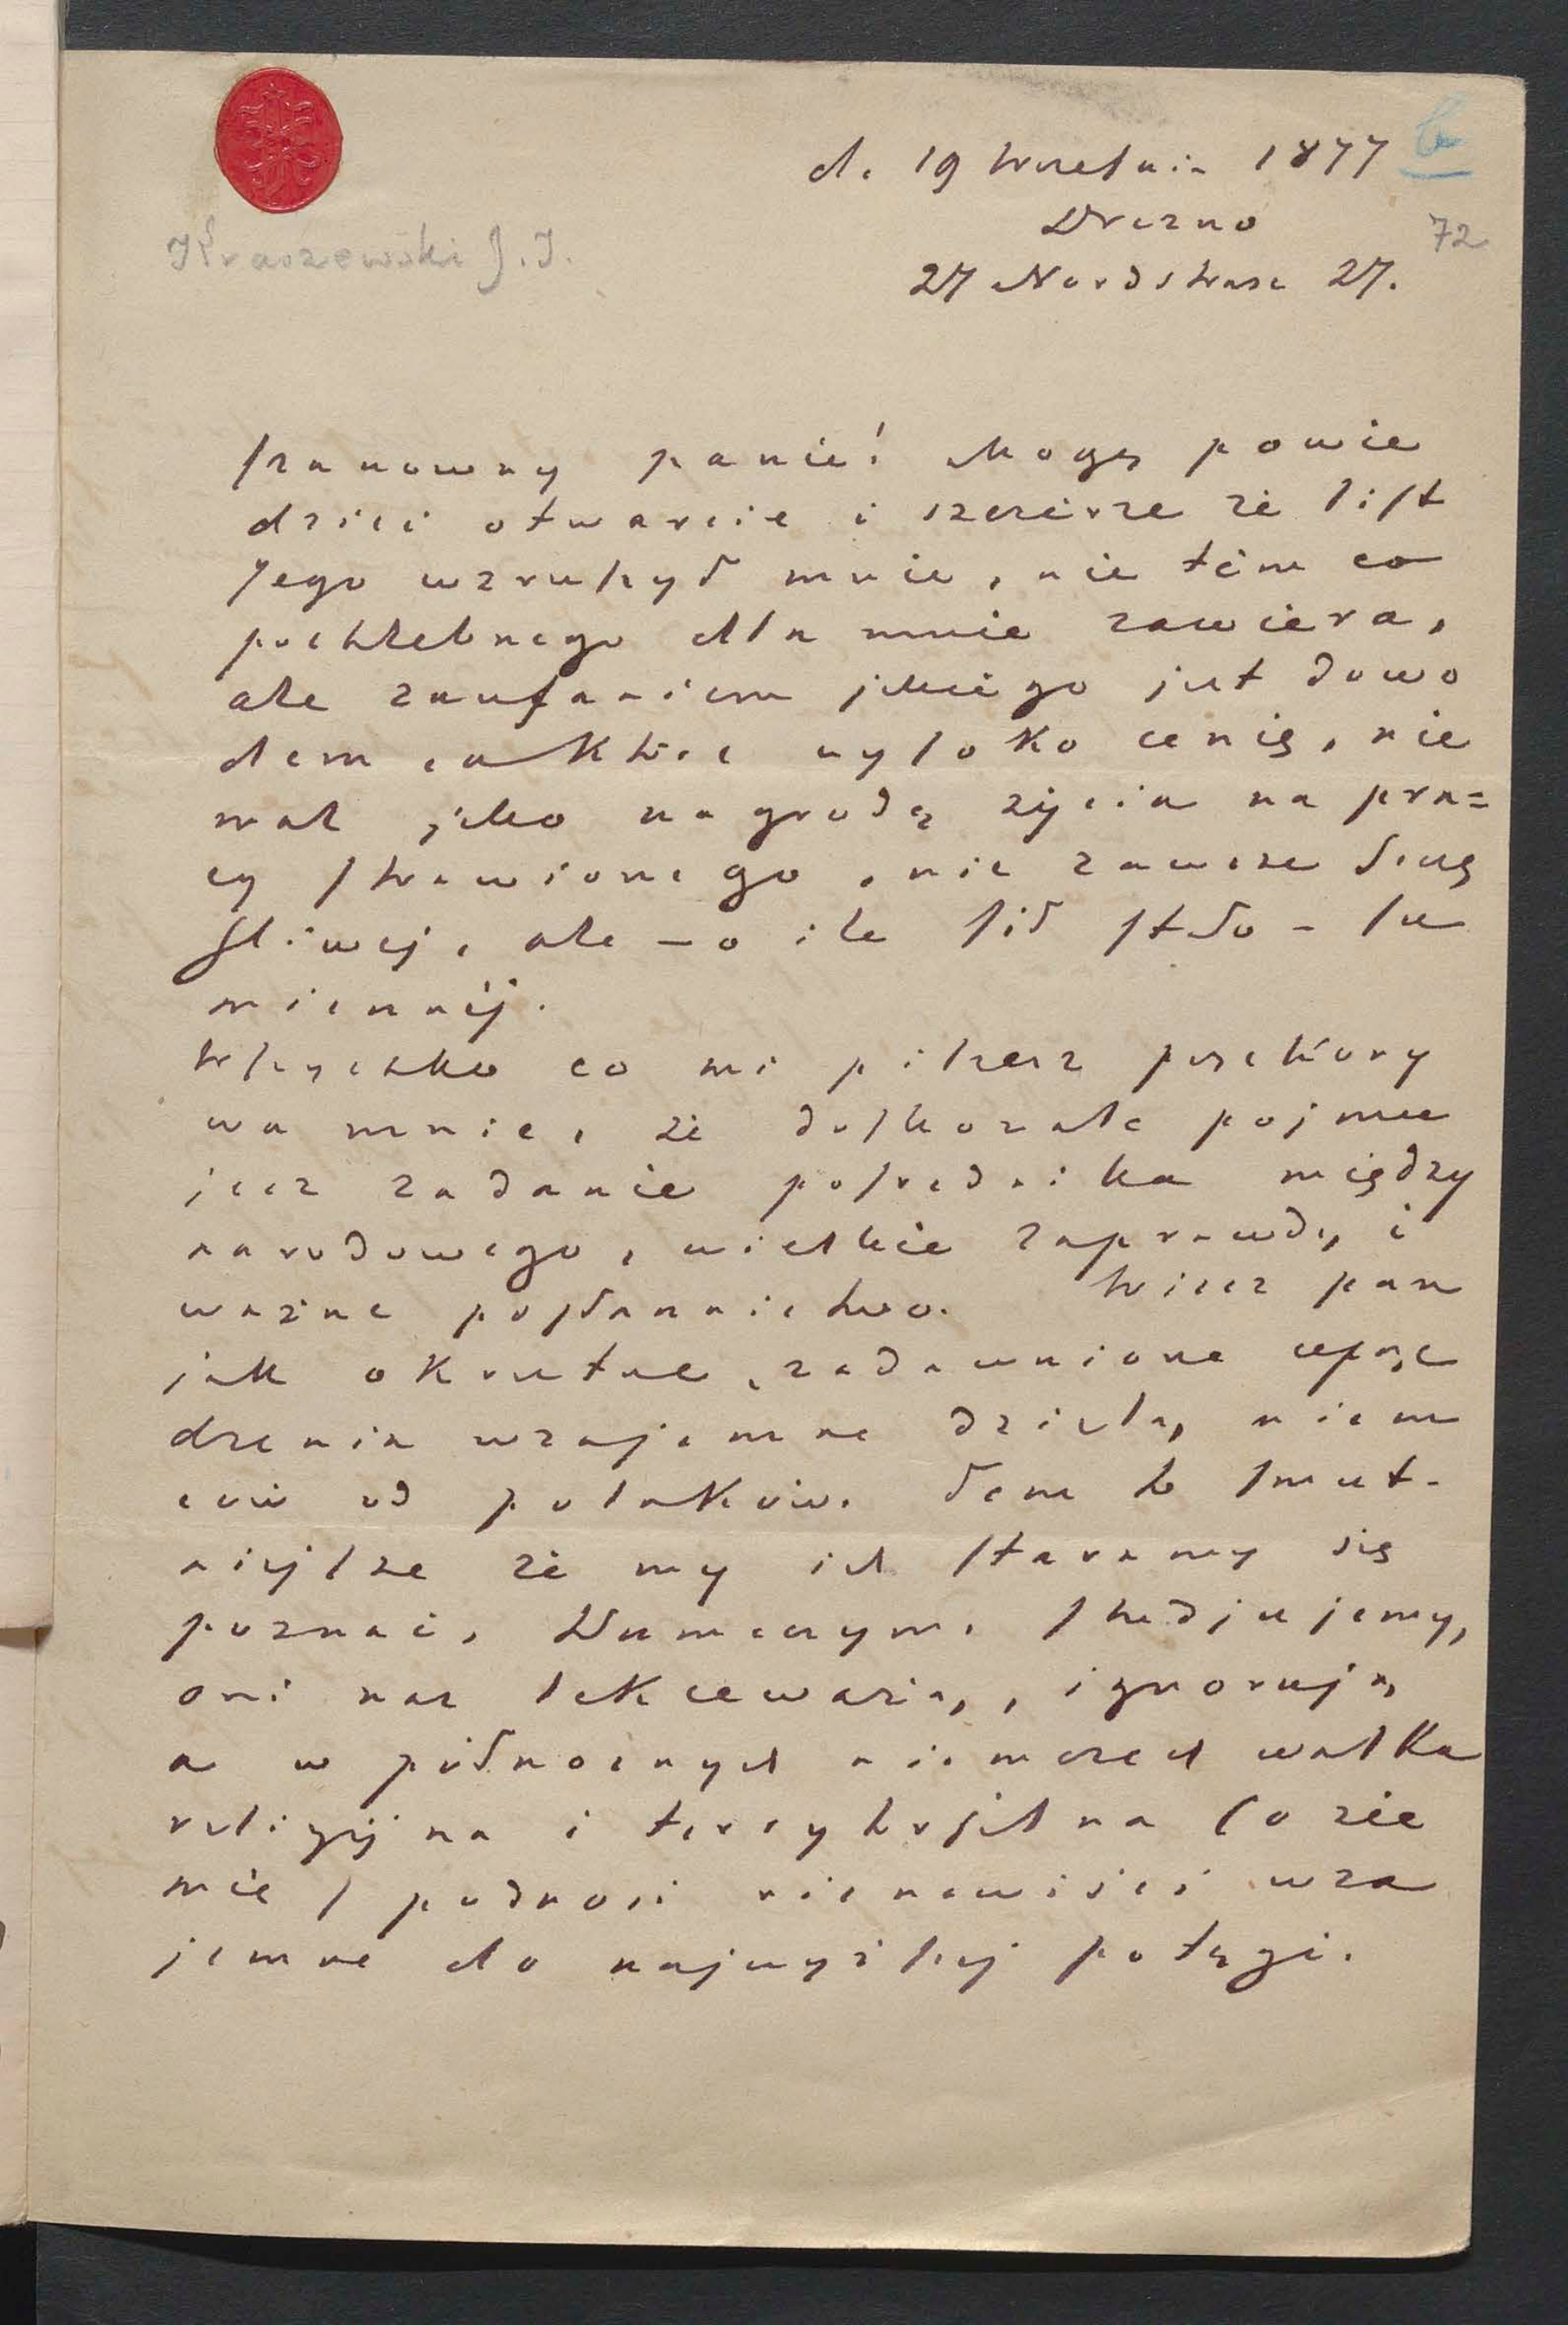 d. 19 Września 1877
b
Drezno
72
Kraszewski J. I.
27 Nordstrase 27.
Szanowny panie! Mogę powie
dzieć otwarcie i szczerze że list
Jego wzruszył mnie, nie tém co
pochlebnego dla mnie zawiera,
ale zaufaniem jakiego jest dowo
dem, a które wysoko cenię, nie
mal jako nagrodę życia na pra=
cy strawionego, nie zawsze szczę
śliwej, ale – o ile sił stało – su
miennéj.
Wszystko co mi piszesz przekony
wa mnie, że doskonale pojmu
jesz zadanie pośrednika między
narodowego, wielkie zaprawdę i
ważne posłannictwo. Wiesz pan
jak okrutne, zadawnione uprze
dzenia wzajemne dzielą niem
ców od polaków. Tem to smut-
niejsze że my ich staramy się
poznać, tłumaczym, studjujemy,
oni nas lekceważą, ignorują,
a w północnych niemczech walka
religijna i terrytorjalna (o zie
mię) podnosi nienawiści wza
jemne do najwyższej potęgi.